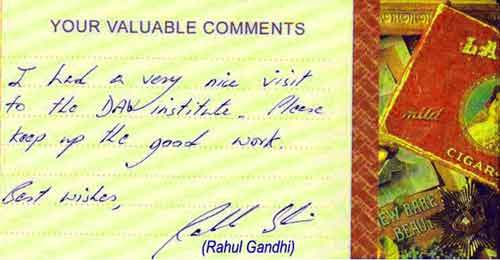 YOUR VALUABLE COMMENTS
I had a very nice visit
to the DAV institute. Please
keep up the good work.
Best wishes,
(Rahul Gandhi)
LA
mild
CIGAR
NEW RARE
BEAUT